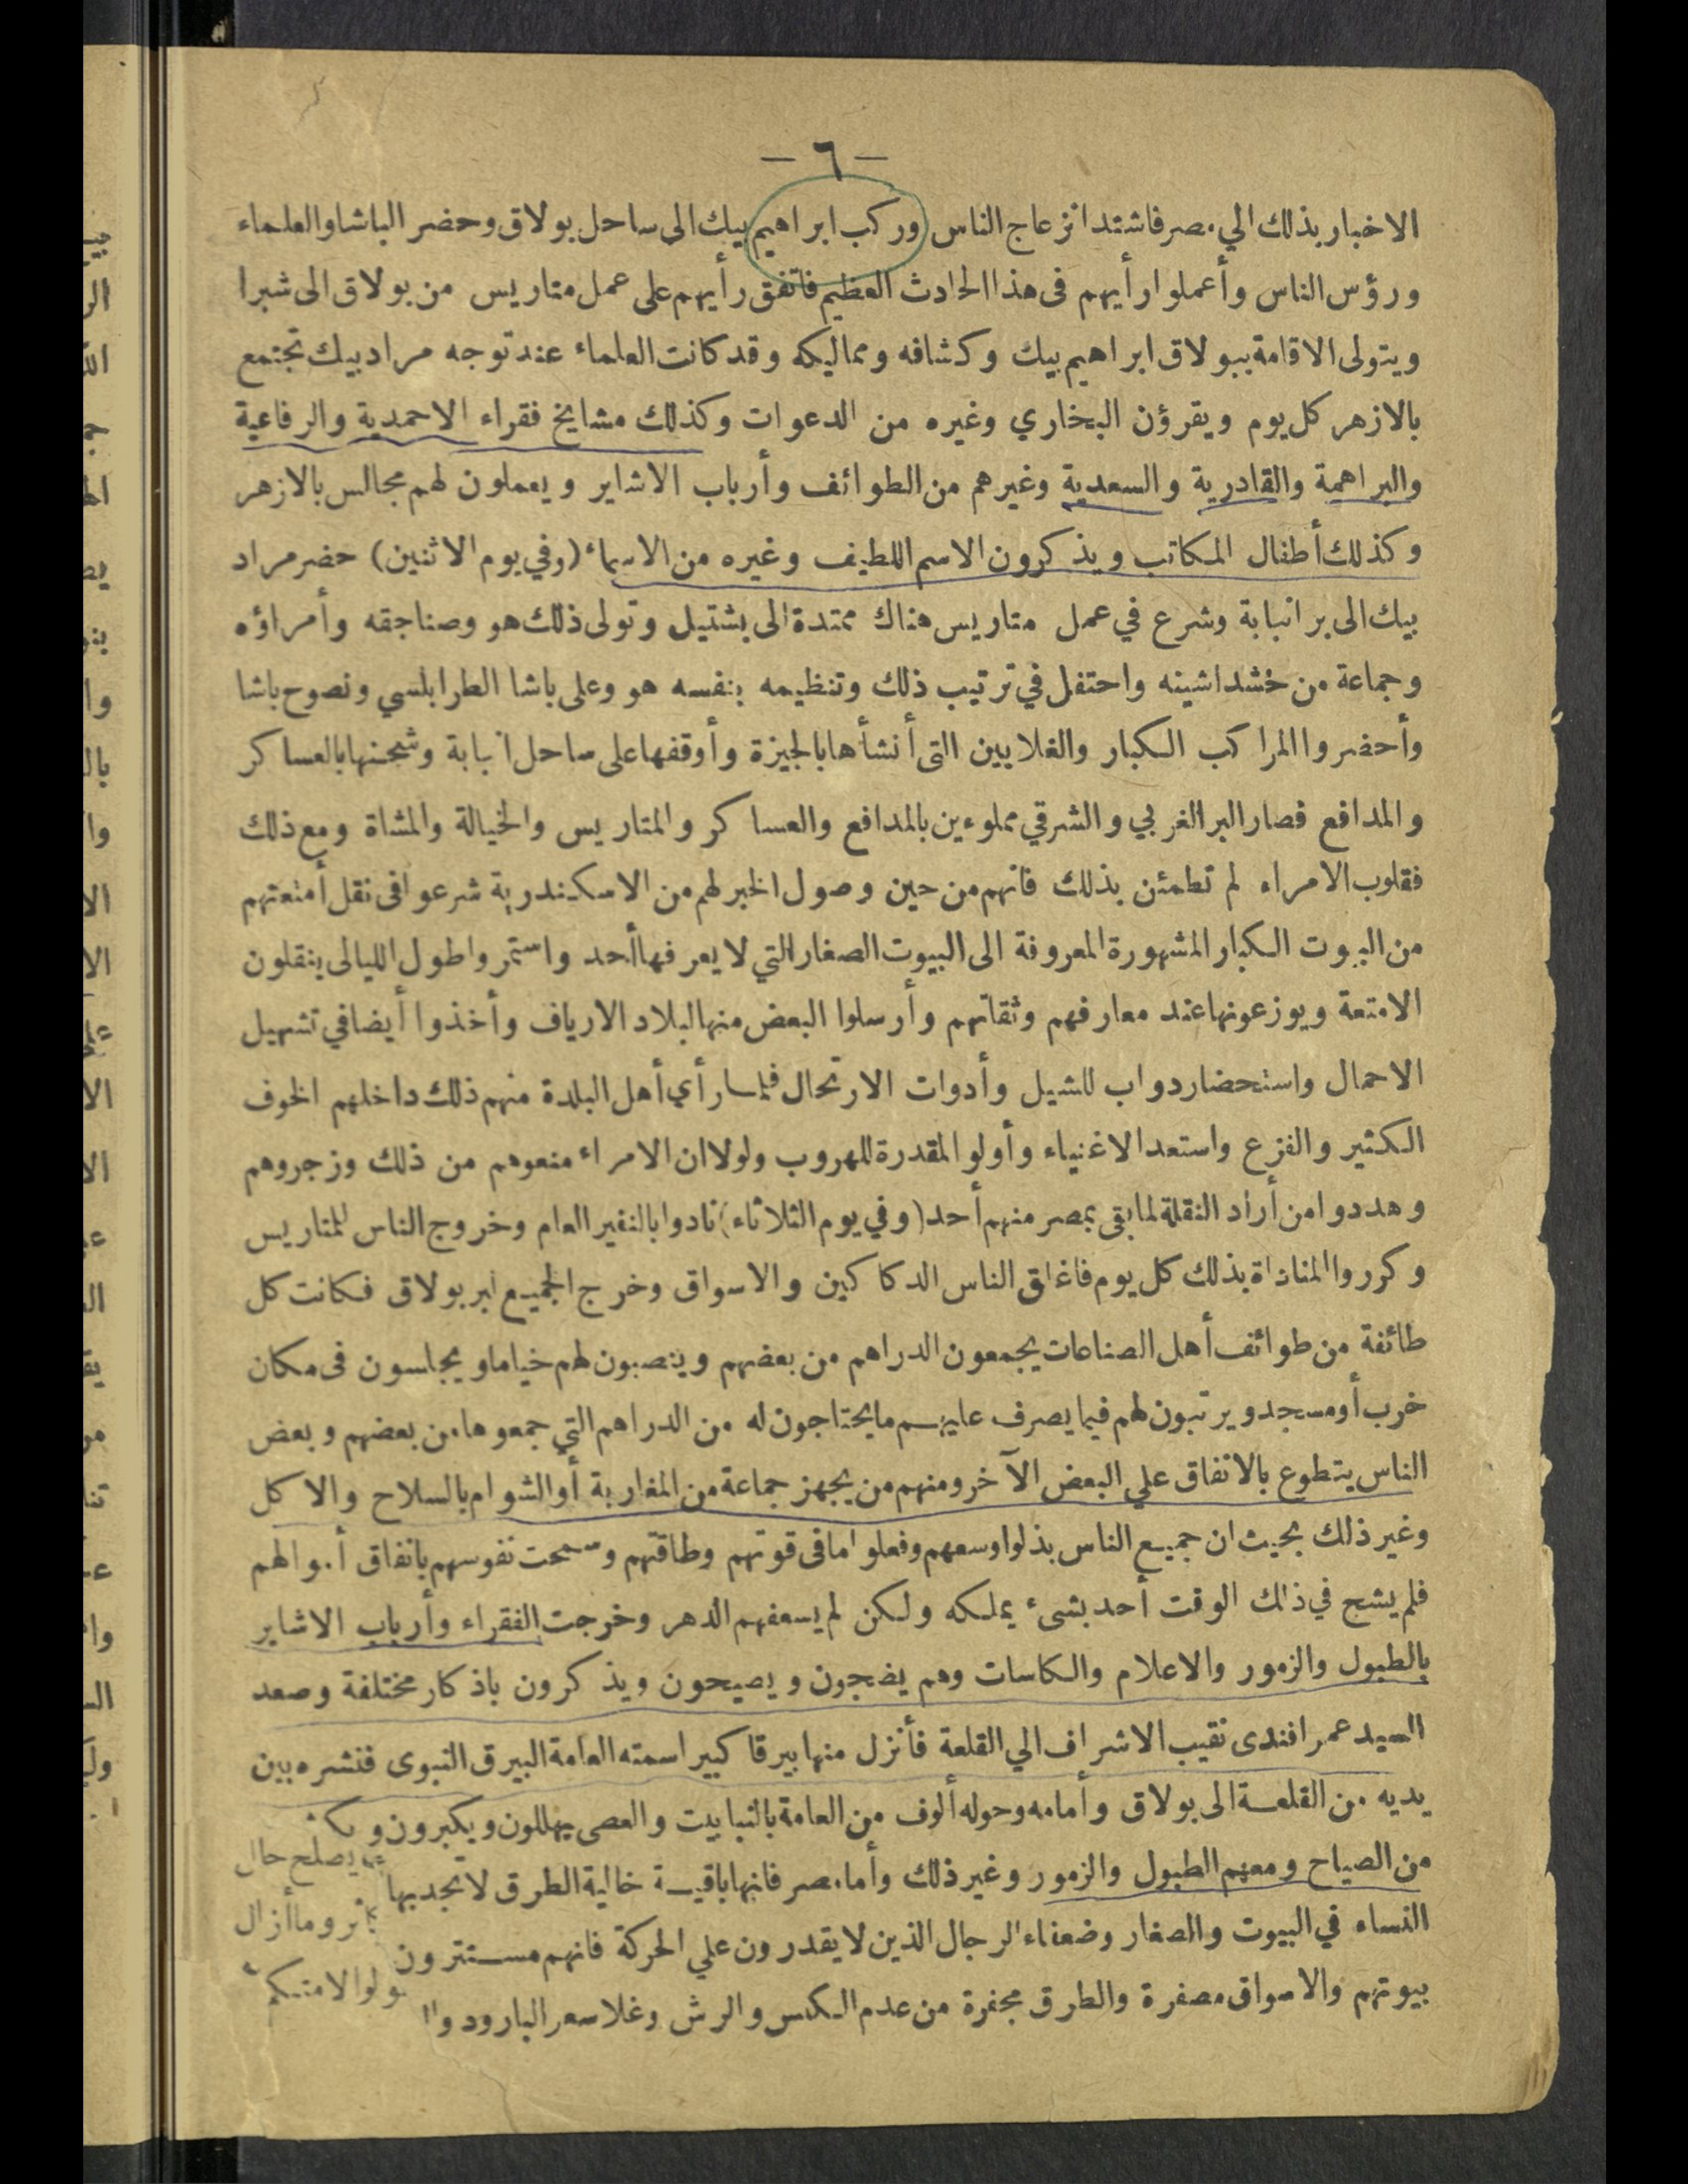 — ٦ —
الاخبار بذلك الي مصر فاشتد انزعاج الناس وركب ابراهيم بيك الى ساحل بولاق وحضر الباشا والعلماء
ورؤس الناس وأعملوا رأيهم فى هذا الحادث العظيم فاتفق رأيهم على عمل متاريس من بولاق الى شبرا
ويتولى الاقامة ببولاق ابراهيم بيك وكشافه ومماليكه وقد كانت العلماء عند توجه مراد بيك تجتمع
بالازهر كل يوم ويقرؤن البخاري وغيره من الدعوات وكذلك مشايخ فقراء الاحمدية والرفاعية
والبراهمة والقادرية والسعدية وغيرهم من الطوائف وأرباب الاشاير ويعملون لهم مجالس بالازهر
وكذلك أطفال المكاتب ويذكرون الاسم اللطيف وغيره من الاسماء (وفي يوم الاثنين) حضر مراد
بيك الى بر انبابة وشرع في عمل متاريس هناك ممتدة الى بشتيل وتولى ذلك هو وصناجقه وأمراؤه
وجماعة من خشداشينه واحتفل في ترتيب ذلك وتنظيمه بنفسه هو وعلى باشا الطرابلسي ونصوح باشا
وأحضروا المراكب الكبار والغلايين التى أنشأها بالجيزة وأوقفها على ساحل انبابة وشحنها بالعساكر
والمدافع فصار البر الغربي والشرقي مملوءين بالمدافع والعساكر والمتاريس والخيالة والمشاة ومع ذلك
فقلوب الامراء لم تطمئن بذلك فانهم من حين وصول الخبر لهم من الاسكندرية شرعوا فى نقل أمتعتهم
من البيوت الكبار المشهورة المعروفة الى البيوت الصغار التي لا يعرفها أحد واستمروا طول الليالى ينقلون
الامتعة ويوزعونها عند معارفهم وثقاتهم وأرسلوا البعض منها لبلاد الارياف وأخذوا أيضا في تشهيل
الاحمال واستحضار دواب للشيل وأدوات الارتحال فلما رأي أهل البلدة منهم ذلك داخلهم الخوف
الكثير والفزع واستعد الاغنياء وأولو المقدرة للهروب ولولا ان الامراء منعوهم من ذلك وزجروهم
وهددوا من أراد النقلة لما بقى بمصر منهم أحد (وفي يوم الثلاثاء) نادوا بالنفير العام وخروج الناس للمتاريس
وكرروا المناداة بذلك كل يوم فاغلق الناس الدكاكين والاسواق وخرج الجميع لبر بولاق فكانت كل
طائفة من طوائف أهل الصناعات يجمعون الدراهم من بعضهم وينصبون لهم خياما ويجلسون فى مكان
خرب أو مسجد ويرتبون لهم فيما يصرف عليهم ما يحتاجون له من الدراهم التي جمعوها من بعضهم وبعض
الناس يتطوع بالانفاق علي البعض الآخر ومنهم من يجهز جماعة من المغاربة أو الشوام بالسلاح والاكل
وغير ذلك بحيث ان جميع الناس بذلوا وسعهم وفعلوا ما فى قوتهم وطاقتهم وسمحت نفوسهم بانفاق أموالهم
فلم يشح في ذلك الوقت أحد بشىء يملكه ولكن لم يسعفهم الدهر وخرجت الفقراء وأرباب الاشاير
بالطبول والزمور والاعلام والكاسات وهم يضجون ويصيحون ويذكرون باذكار مختلفة وصعد
السيد عمر افندى نقيب الاشراف الي القلعة فأنزل منها بيرقا كبيرا سمته العامة البيرق النبوى فنشره بين
يديه من القلعة الى بولاق وأمامه وحوله ألوف من العامة بالنبابيت والعصى يهللون ويكبرون
من الصياح ومعهم الطبول والزمور وغير ذلك وأما مصر فانها باقية خالية الطرق لا تجد بها يصلح حال
النساء في البيوت والصغار وضعفاء الرجال الذين لا يقدرون علي الحركة فانهم مستترون وما أزال
بيوتهم والاسواق مصفرة والطرق مجفرة من عدم الكنس والرش وغلا سعر البارود